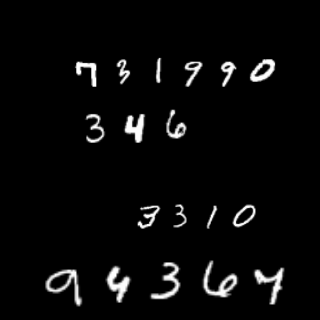 731990
346
3310
94367